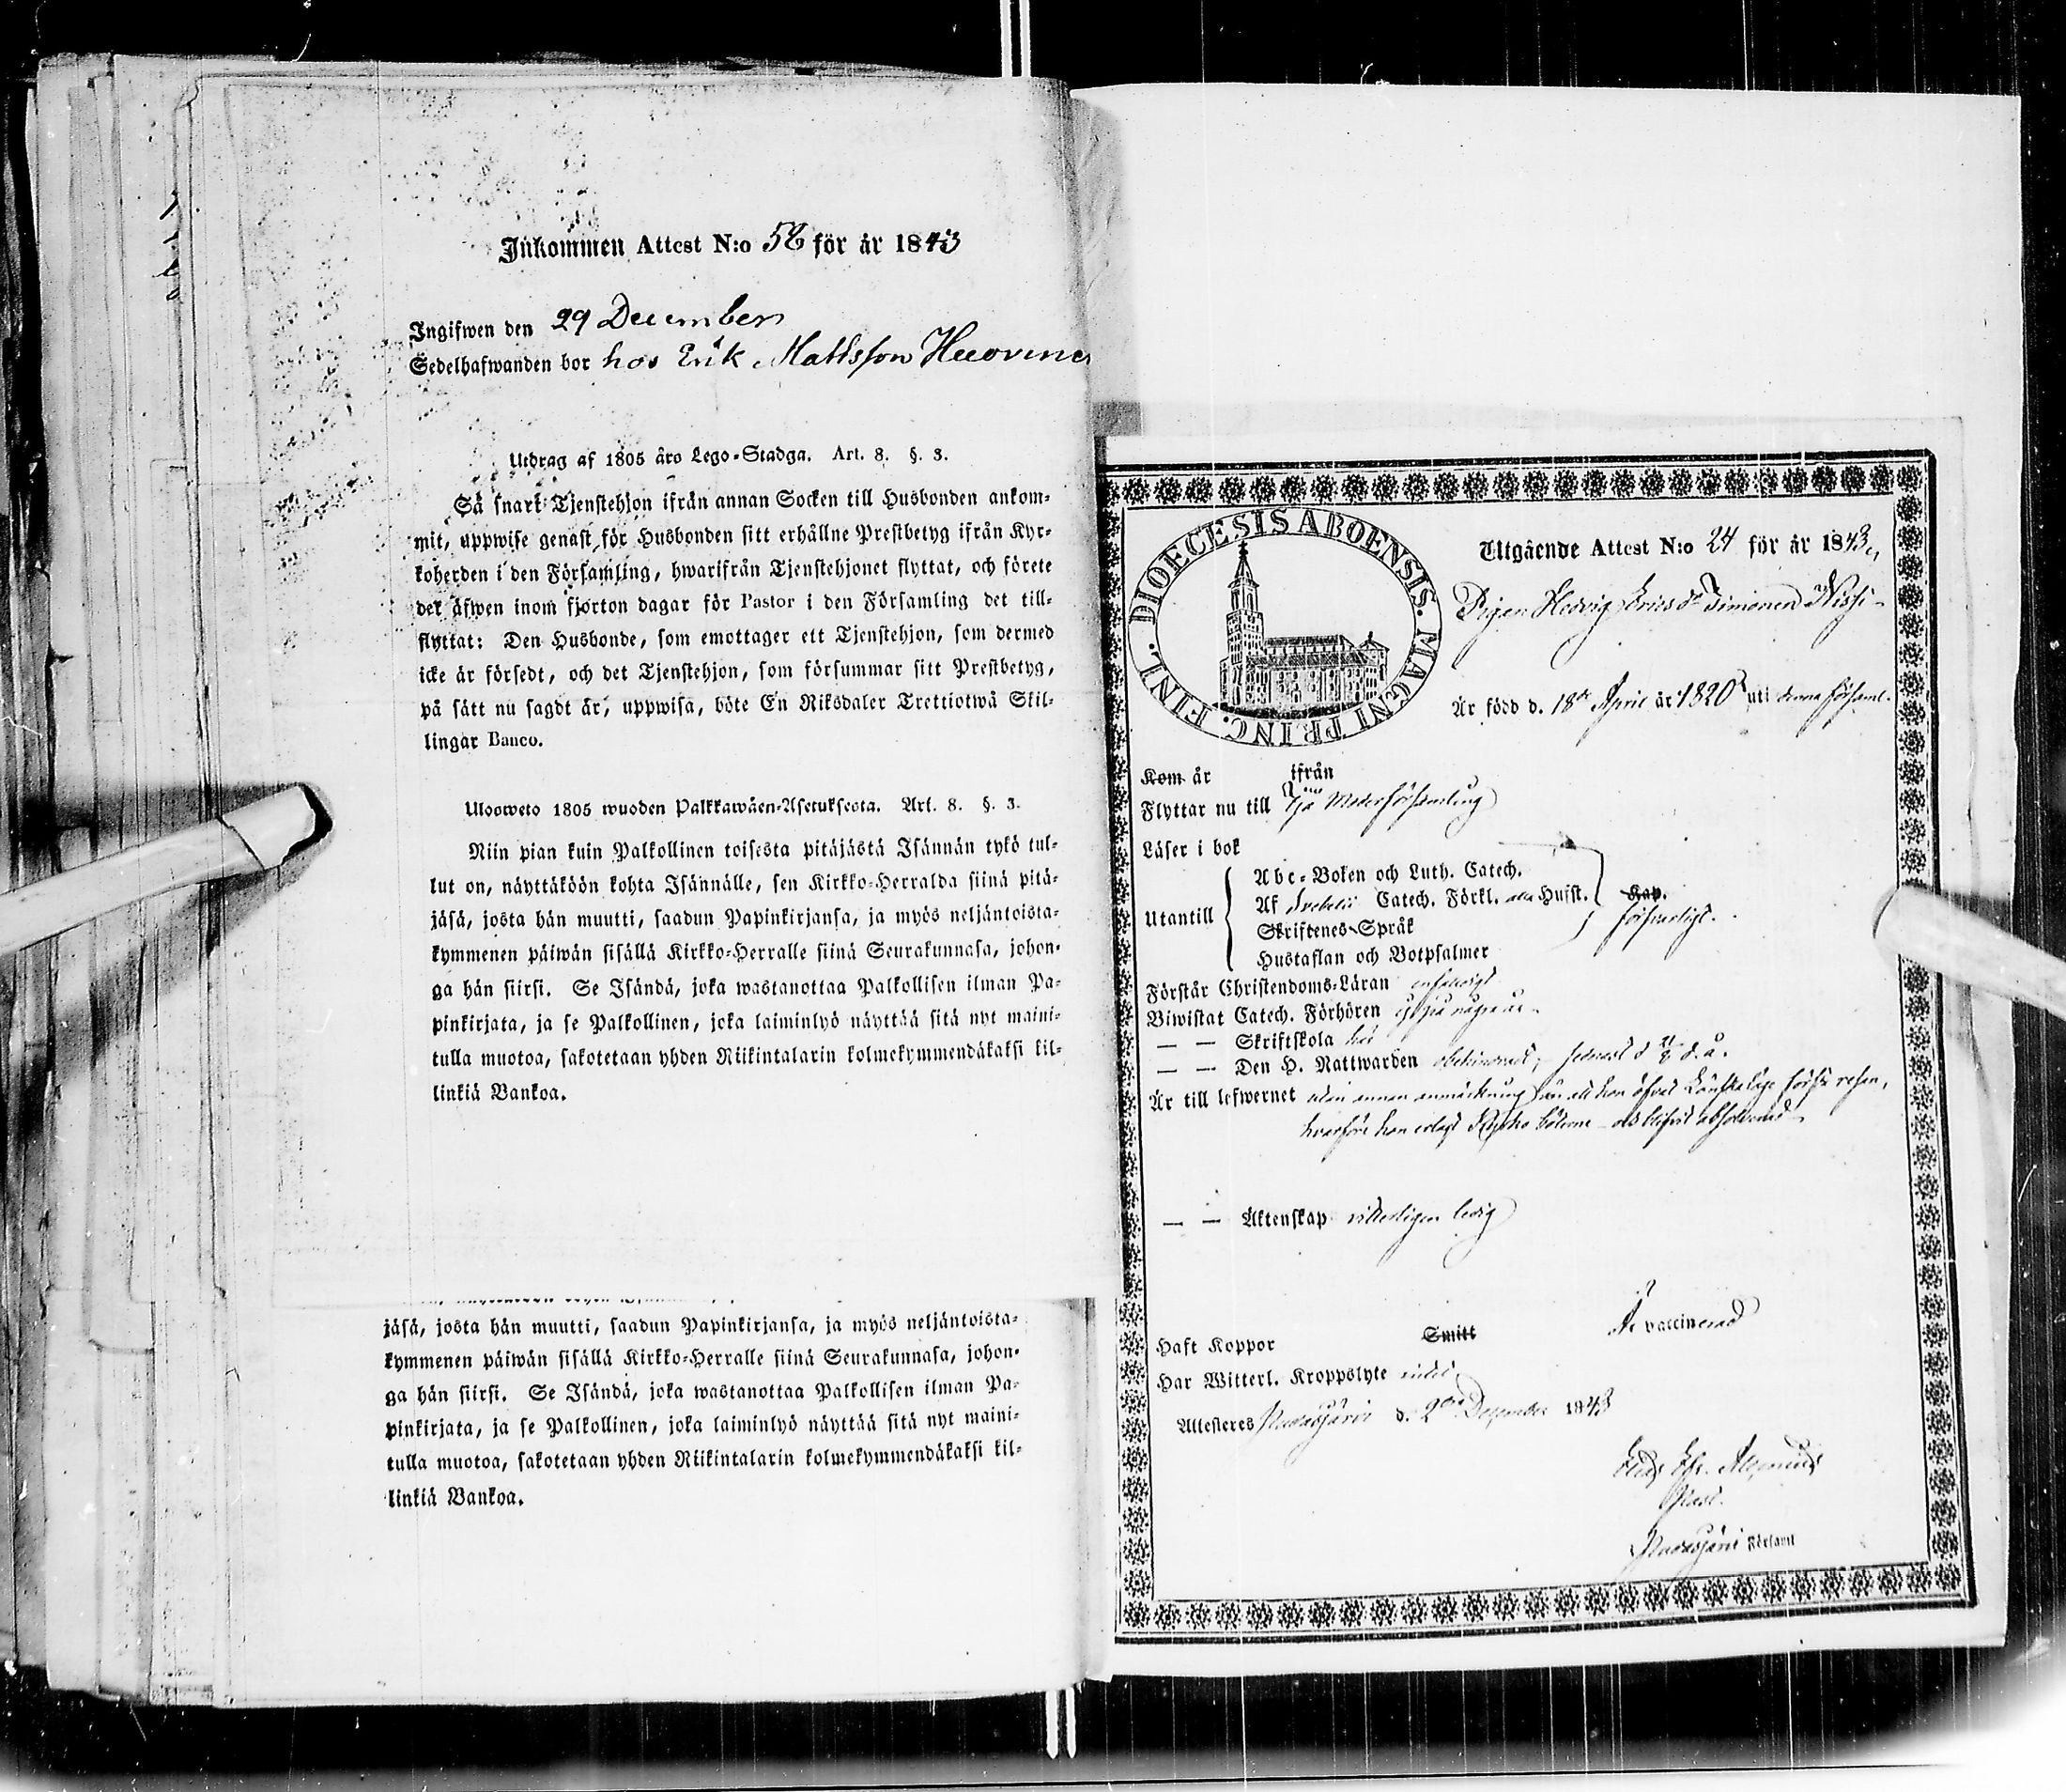 Inkommen Attest N:o 58 för år 1843
Ingifwen den 29 December
Sedelhafwanden bor hos Erik Mattsson Huovinen
Utdrag af 1805 års Lego-Stadga. Art. 8. §. 3.
Så snart Tjenstehjon ifrån annan Socken till Husbonden ankom-
mit, uppwise genast för Husbonden sitt erhållne Prestbetyg ifrån Kyr-
koherden i den Församling, hwarifrån Tjenstehjonet flyttat, och förete
det äfwen inom fjorton dagar för Pastor i den Församling det till-
flyttat: Den Husbonde, som emottager ett Tjenstehjon, som dermed
icke är försedt, och det Tjenstehjon, som försummar sitt Prestbetyg,
på sätt nu sagdt är, uppwisa, böte En Riksdaler Trettiotwå Skil-
lingar Banco.
Ulosweto 1805 wuoden Palkkawäen-Asetuksesta. Art. 8. §. 3.
Niin pian kuin Palkollinen toisesta pitäjästä Isännän tykö tul-
lut on, näyttäköön kohta Isännälle, sen Kirkko-Herralda siinä pitä-
jäsä, josta hän muutti, saadun Papinkirjansa, ja myös neljäntoista-
kymmenen päiwän sisällä Kirkko-Herralle siinä Seurakunnasa, johon-
ga hän siirsi. Se Isändä, joka wastanottaa Palkollisen ilman Pa-
pinkirjata, ja se Palkollinen, joka laiminlyö näyttää sitä nyt maini-
tulla muotoa, sakotetaan yhden Riikintalarin kolmekymmendäkaksi kil-
linkiä Bankoa.
jäsä, josta hän muutti, saadun Papinkirjansa, ja myös neljäntoista-
kymmenen päiwän sisällä Kirkko-Herralle siinä Seurakunnasa, johon-
ga hän siirsi. Se Isändä, joka wastanottaa Palkollisen ilman Pa-
pinkirjata, ja se Palkollinen, joka laiminlyö näyttää sitä nyt maini-
tulla muotoa, sakotetaan yhden Riikintalarin kolmekymmendäkaksi kil-
linkiä Bankoa.
DIOECESIS ABOENSIS. MAGNI PRINC. FINL.
Utgående Attest N:o 24 för år 1843
Pigan Hedvig Ericsdr Timonen
Är född d. 18de April år 1820 uti denna församl.
Kom år ifrån
Flyttar nu till Moderförsamling
Läser i bok
Abc-Boken och Luth. Catech.
Utantill Af Svebelii Catech. Förkl. alla Hufst. Kap.
försvarligt.
Skriftenes-Språk
Hustaflan och Botpsalmer
Förstår Christendoms-Läran enfaldigt
Biwistat Catech. Förhören ej på några år
— — Skriftskola här
— — Den H. Nattwarden obehindrad, sednast d.
Är till lefwernet utan annan anmärkning än att hon öfvat Lönskaläge första resan,
hvarföre hon erlagt Kyrko böterne och blifvit absolverad
— — Äktenskap vitterligen ledig
Haft Koppor Smitt Är vaccinerad
Har Witterl. Kroppslyte intet
Attesteras Pudasjärvi d. 2dra December 1843
Past.
Pudasjärvi Församl